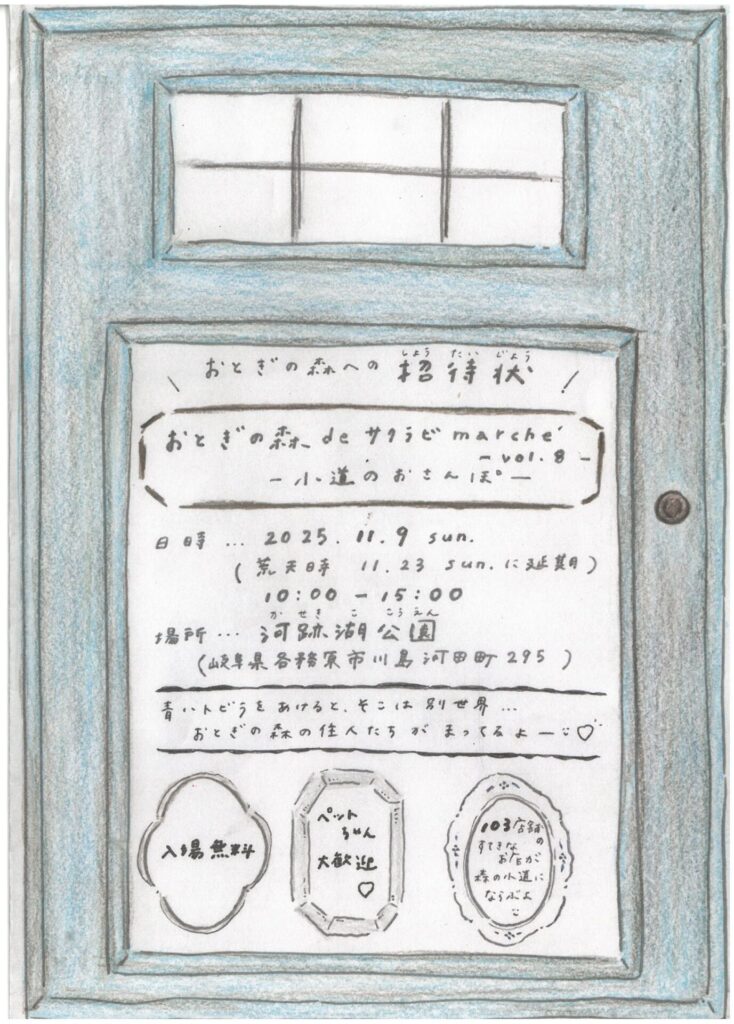 おとぎの森への招待状
しょう たい じょう
おとぎの森 de サクラビ marché
- vol.8 -
ー小道のおさんぽー
日時 … 2025. 11. 9 sun.
(荒天時 11.23 sun. に延期)
10:00 ー 15:00
かせきこ こうえん
場所 … 河跡湖公園
(岐阜県各務原市川島河田町295)
青いトビラをあけると、そこは別世界…
おとぎの森の住人たちがまってるよー♡
入場無料
ペット
ちゃん
大歓迎
♡
103店舗の
すてきな
お店が
森の小道に
ならぶよ